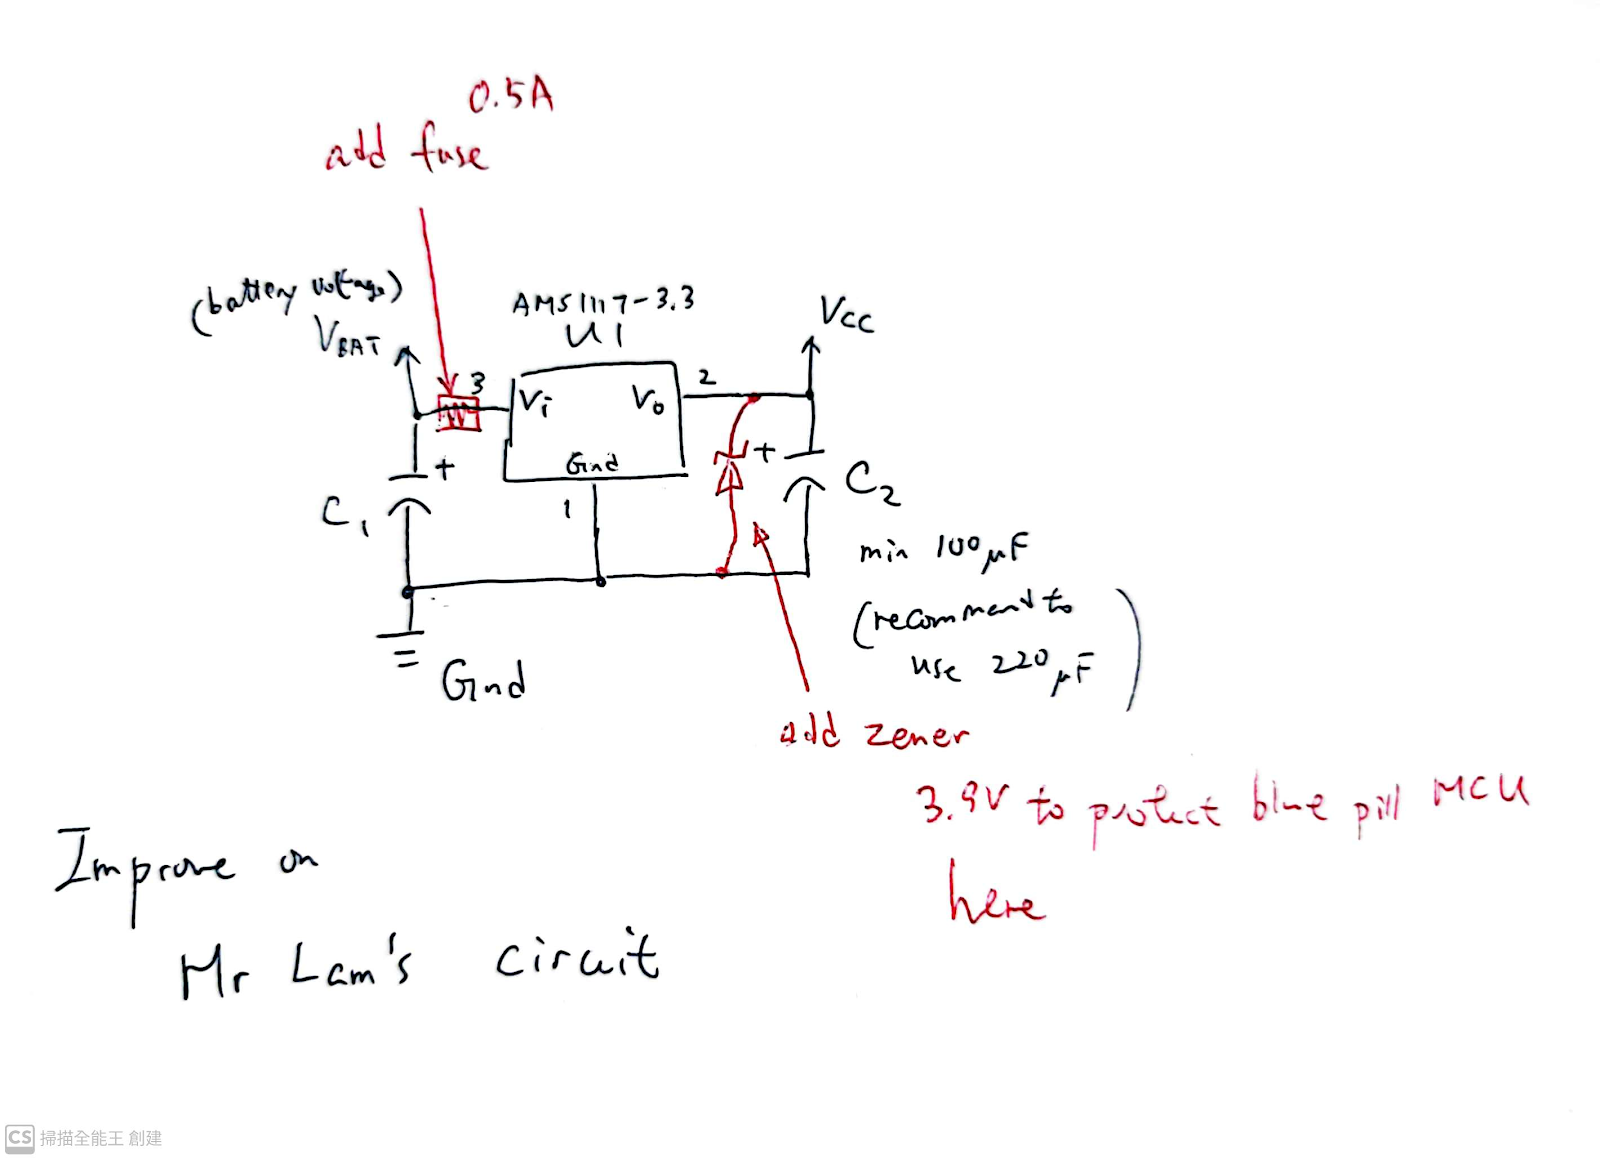 0.5A
add fuse
(battery voltage)
VBAT
AMS1117-3.3
U1
VCC
3
2
Vi
Vo
Gnd
1
+
+
C1
C2
min 100μF
(recommend to
use 220μF)
Gnd
add zener
3.9V to protect blue pill MCU
here
Improve on
Mr Lam's circuit
CS 掃描全能王 創建